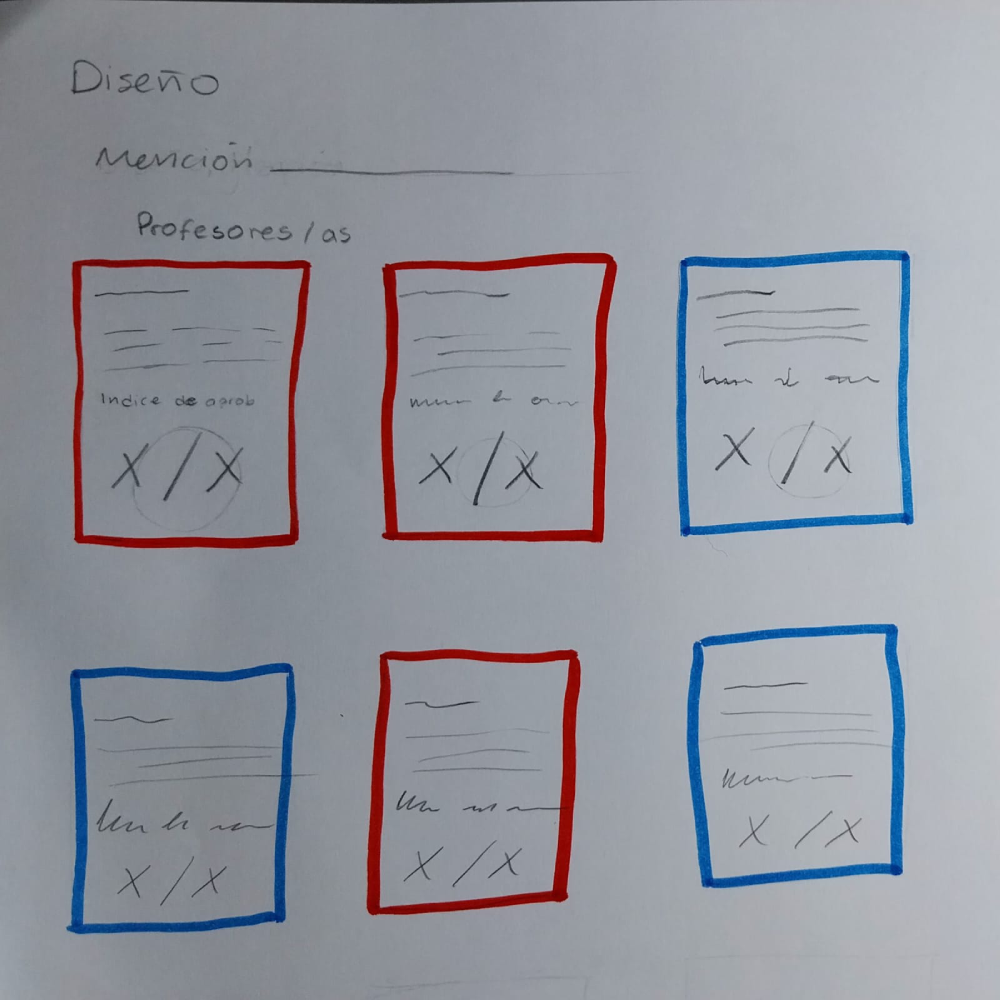 Diseño
Mención
Profesores/as
Indice de aprob
X / X
X / X
X / X
X / X
X / X
X / X